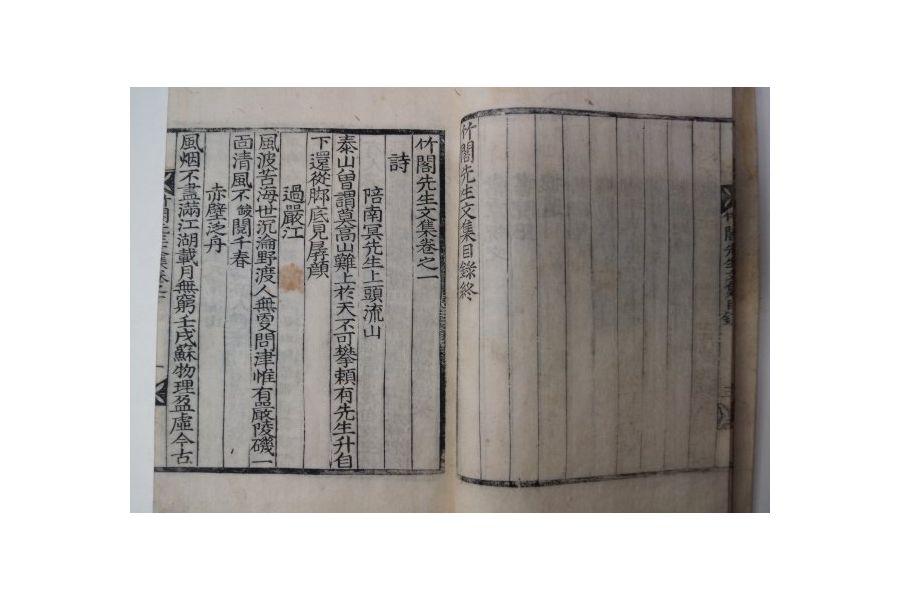 竹閣先生文集目錄終
竹閣先生文集卷之一
詩
陪南冥先生上頭流山
泰山曽謂莫高山難上於天不可攀頼有先生升自
下還從脚底見孱顔
過嚴江
風波苦海世沉淪野渡人無更問津惟有嚴陵磯一
面清風不 閱千春
赤壁泛舟
風烟不盡滿江湖載月無窮壬戌蘇物理盈虛今古